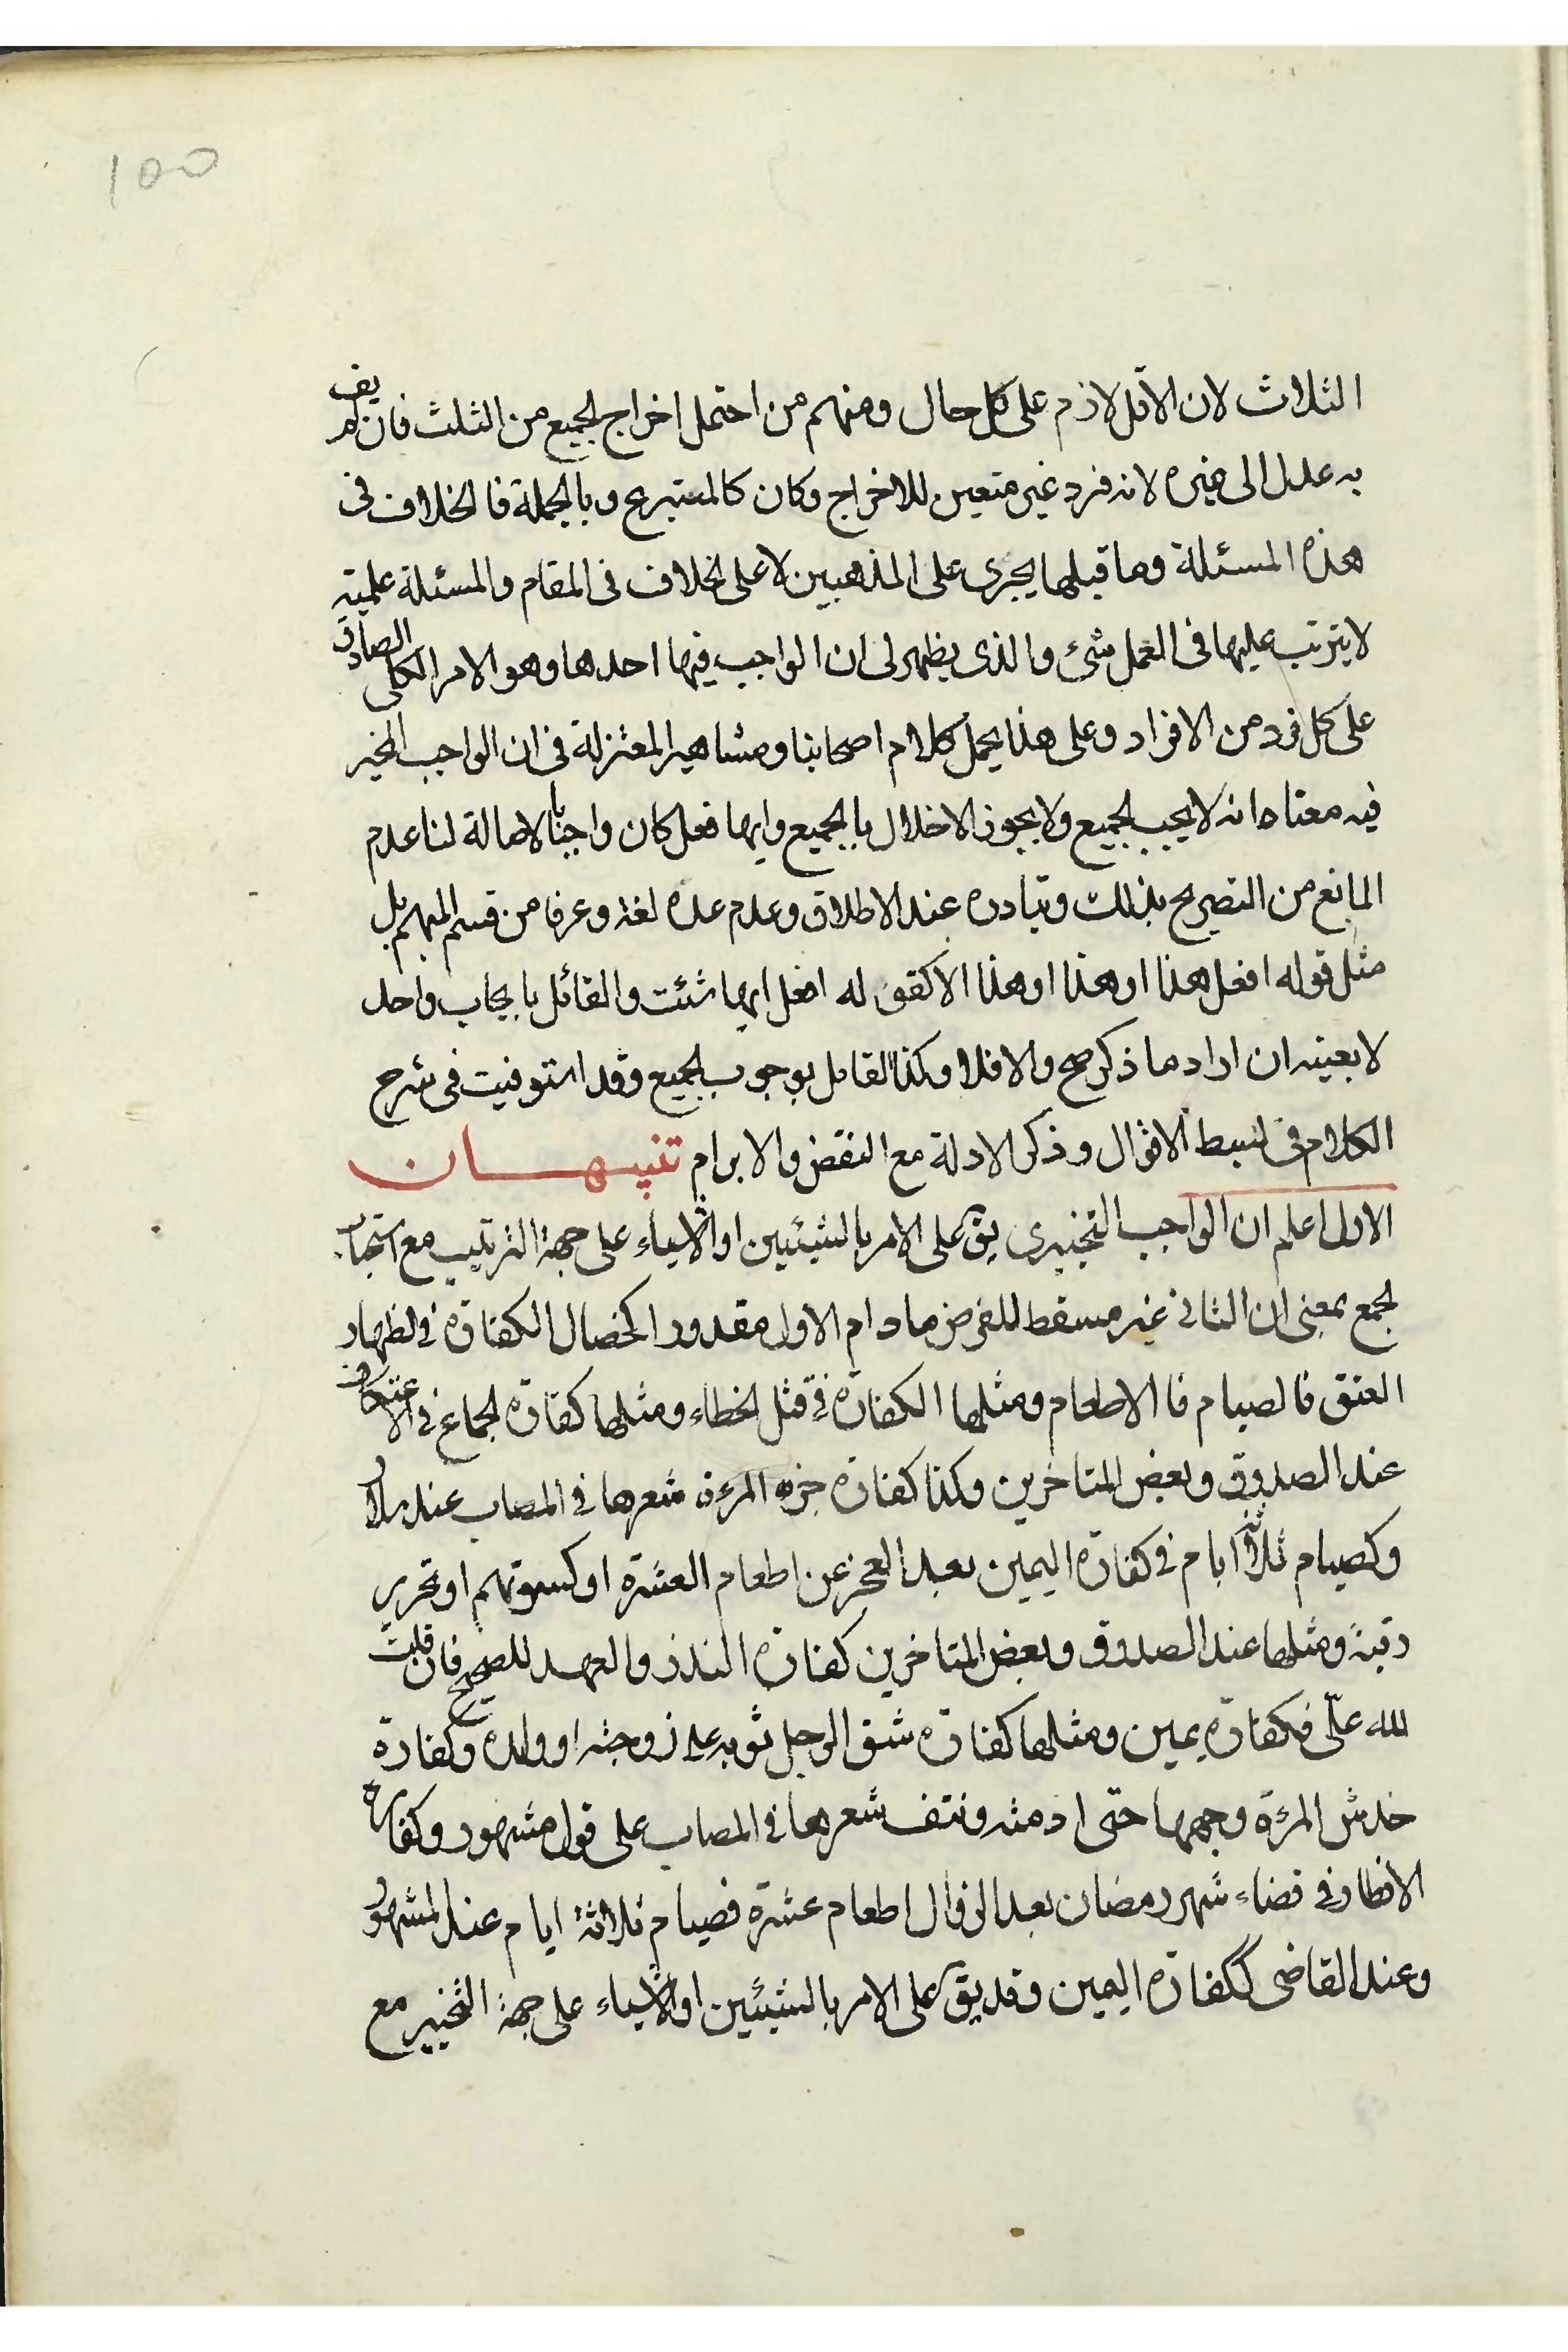 ١٥٥
الثلاث لان الاقل لازم على كل حال ومنهم من احتمل اخراج الجميع من الثلث فان لم يف
به عدل الى غيره لانه فرد غير متعين للاخراج وكان كالمتبرع وبالجملة فالخلاف فى
هذه المسئلة وما قبلها يجرى على المذهبين لا على الخلاف فى المقام والمسئلة علمية
لا يترتب عليها فى العمل شئ والذى يظهر لى ان الواجب فيها احدها وهو الامر الكلى الصادق
على كل فرد من الافراد وعلى هذا يحمل كلام اصحابنا ومشاهير المعتزلة فى ان الواجب المخير
فيه معناه انه لا يجب الجميع ولا يجوز الاخلال بالجميع وايها فعل كان واجبا بالاصالة لنا عدم
المانع من التصريح بذلك وتبادره عند الاطلاق وعدم عده لغة وعرفا من قسم المبهم بل
مثل قوله افعل هذا او هذا او هذا الا كقوله له افعل ايها شئت والقائل بايجاب واحد
لا بعينه ان اراد ما ذكر صح والا فلا وكذا القائل بوجوب الجميع وقد استوفيت فى شرح
الكلام فى بسط الاقوال وذكر الادلة مع النقض والابرام تنبيهان
الاول اعلم ان الواجب التخييرى يق على الامر بالشيئين او الاشياء على جهة الترتيب مع استحباب
الجمع بمعنى ان الثانى غير مسقط للفرض ما دام الاول مقدورا كخصال الكفارة فى الظهار
العتق فالصيام فالاطعام ومثلها الكفارة فى قتل الخطاء ومثلها كفارة الجماع فى الاعتكاف
عند الصدوق وبعض المتاخرين وكذا كفارة جزه المرءة شعرها فى المصاب عند سلار
وكصيام ثلاثة ايام فى كفارة اليمين بعد العجز عن اطعام العشرة او كسوتهم او تحرير
رقبة ومثلها عند الصدوق وبعض المتاخرين كفارة النذر والعهد للصحيح فان قلت
لله علىّ فكفارة يمين ومثلها كفارة شق الرجل ثوبه على زوجته او ولده وكفارة
خدش المرءة وجهها حتى ادمته ونتف شعرها فى المصاب على قول مشهور وكفارة
الافطار فى قضاء شهر رمضان بعد الزوال اطعام عشرة فصيام ثلاثة ايام عند المشهور
وعند القاضى ككفارة اليمين وقد يق على الامر بالشيئين او الاشياء على جهة التخيير مع